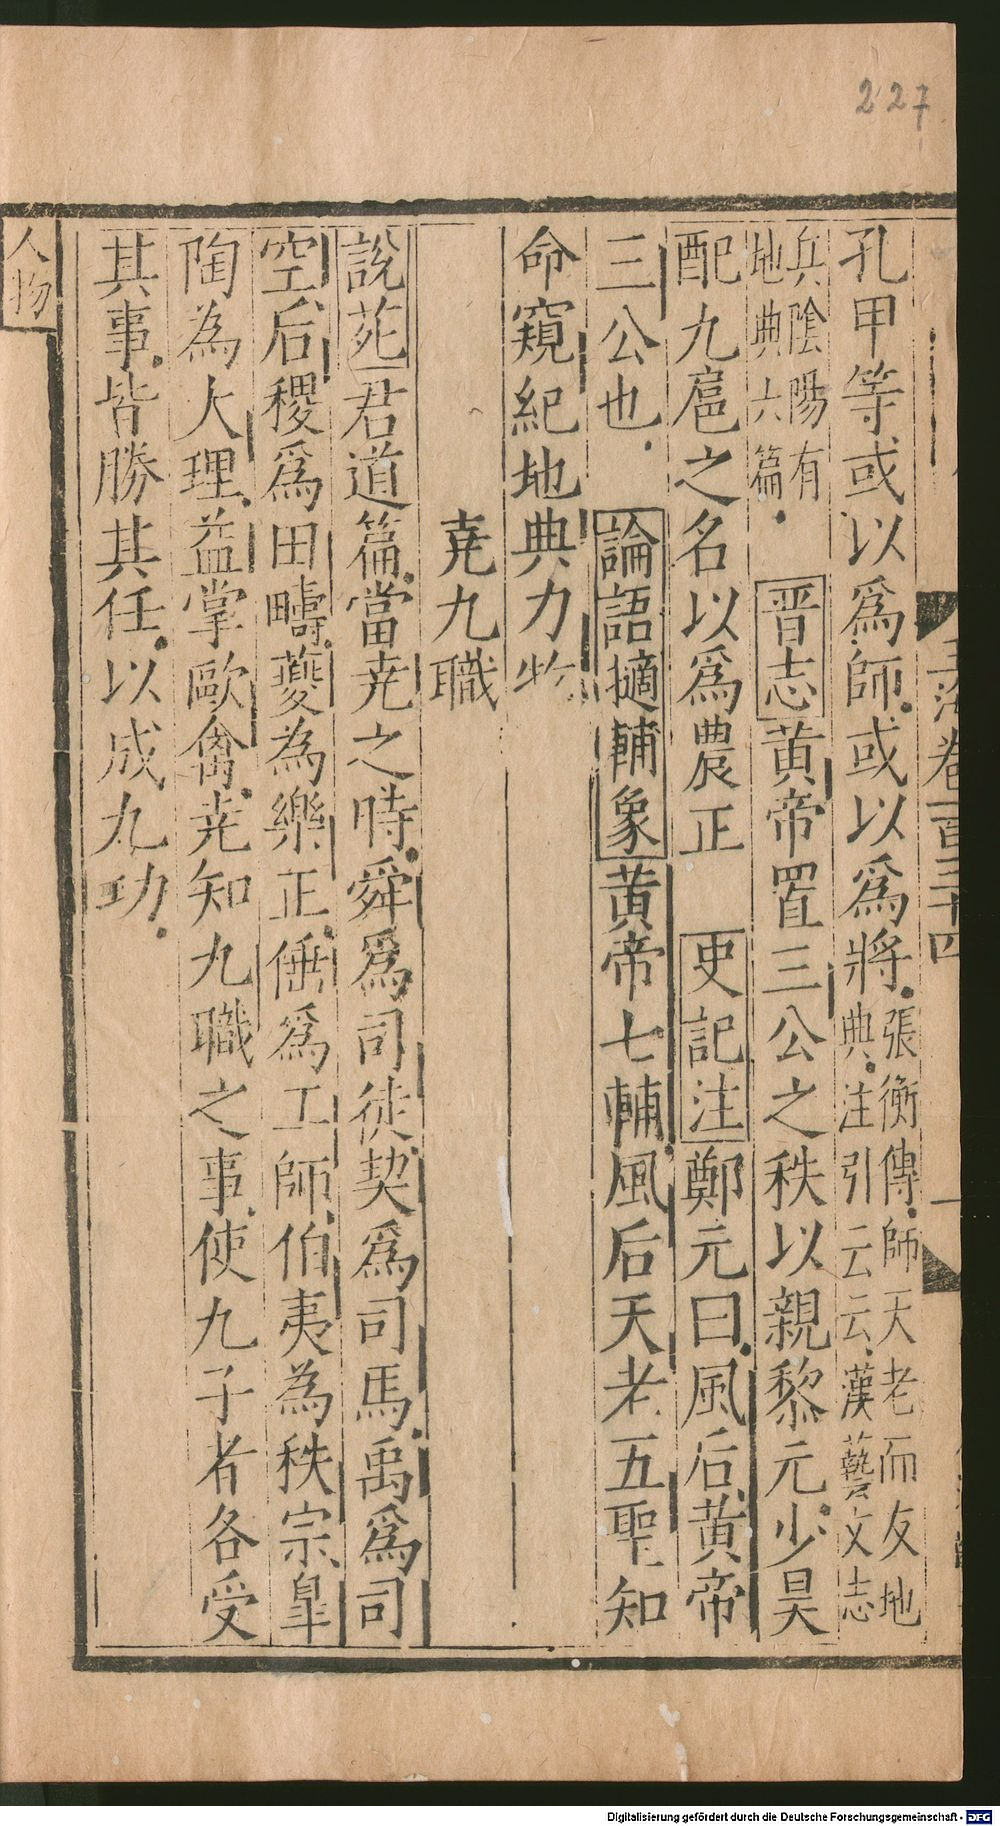 227
玉海卷一百三十四
孔甲等或以爲師或以爲將張衡傳師天老而友地典注引云云漢藝文志
兵陰陽有地典六篇 晋志黄帝置三公之秩以親黎元少昊
配九扈之名以爲農正 史記注鄭元曰風后黄帝
三公也 論語擿輔象黄帝七輔風后天老五聖知
命窺紀地典力牧
尭九職
說苑君道篇當尭之時舜爲司徒契爲司馬禹爲司
空后稷爲田疇夔為樂正倕爲工師伯夷為秩宗皐
陶為大理益掌歐禽尭知九職之事使九子者各受
其事皆勝其任以成九功
人物
Digitalisierung gefördert durch die Deutsche Forschungsgemeinschaft - DFG